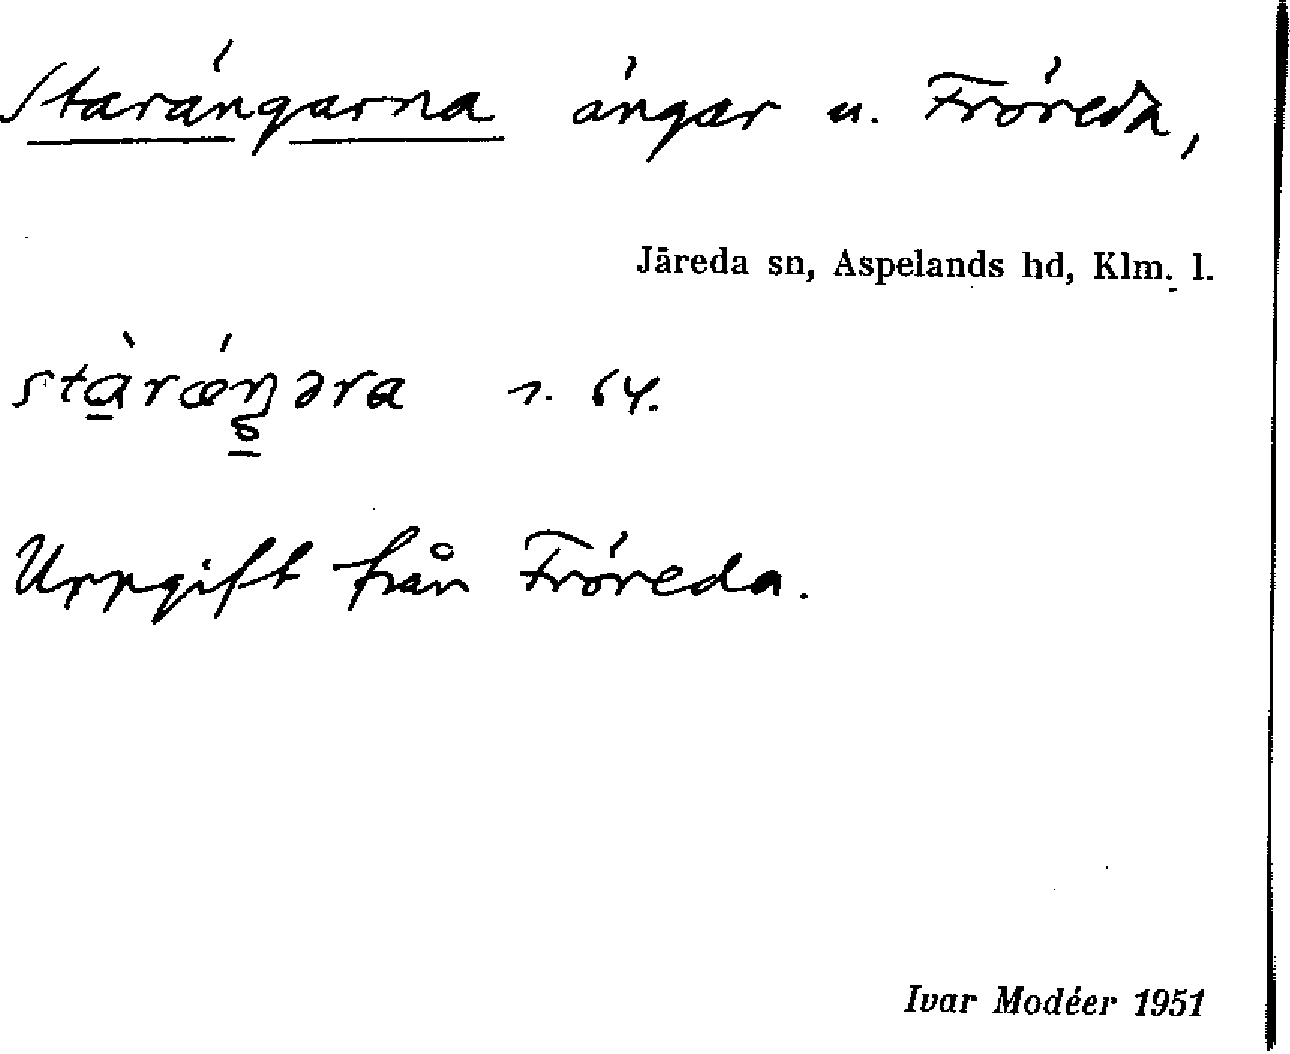 Starängarna ängar u. Fröreda,
Järeda sn, Aspelands hd, Klm. l.
stàrǽŋəra s. 64.
Uppgift från Fröreda.
Ivar Modéer 1951